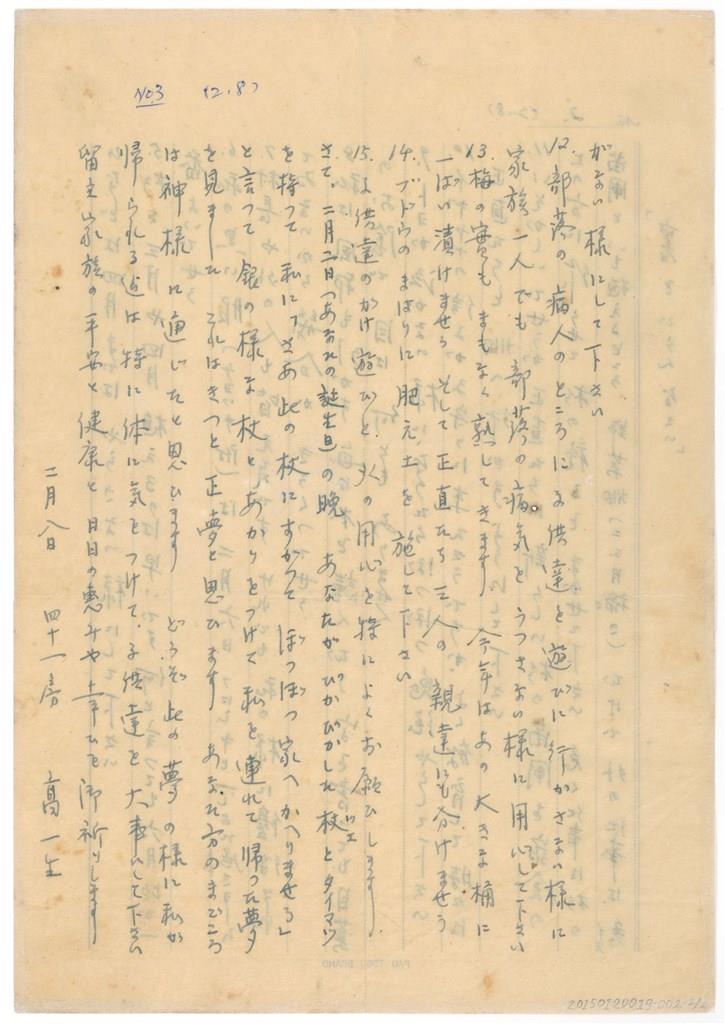 No.3 (2.8)
がない様にして下さい
12. 部落の病人のところに子供達を遊びに行かさない様に
家族一人でも部落の病気をうつさない様に用心して下さい
13. 梅の實もまもなく熟してきます 今年はあの大きな桶に
一ぱい漬けませう そして正直たち三人の親達にも分けませう
14. ブドウのまはりに肥え土を施して下さい
15. 子供達のかけ遊びと火の用心を特によくお願ひします
さて、二月二日(あなたの誕生日)の晩 あなたがぴかぴかした杖とタイマツ
を持つて私に「さあ此の杖にすがつてぼつぼつ家へかへりませう」
と言つて銀の様な杖とあかりをつけて私を連れて帰つた夢
を見ました これはきつと正夢と思ひます あなた方のまごころ
は神様に通じたと思ひます どうぞ此の夢の様に私が
帰られる迄は特に体に気をつけて、子供達を大事にして下さい
留主家族の平安と健康と日日の恵みや幸ひを御祈りします
二月八日 四十一房 高一生
PAU TSOU BRAND
20150120019-002-2/2